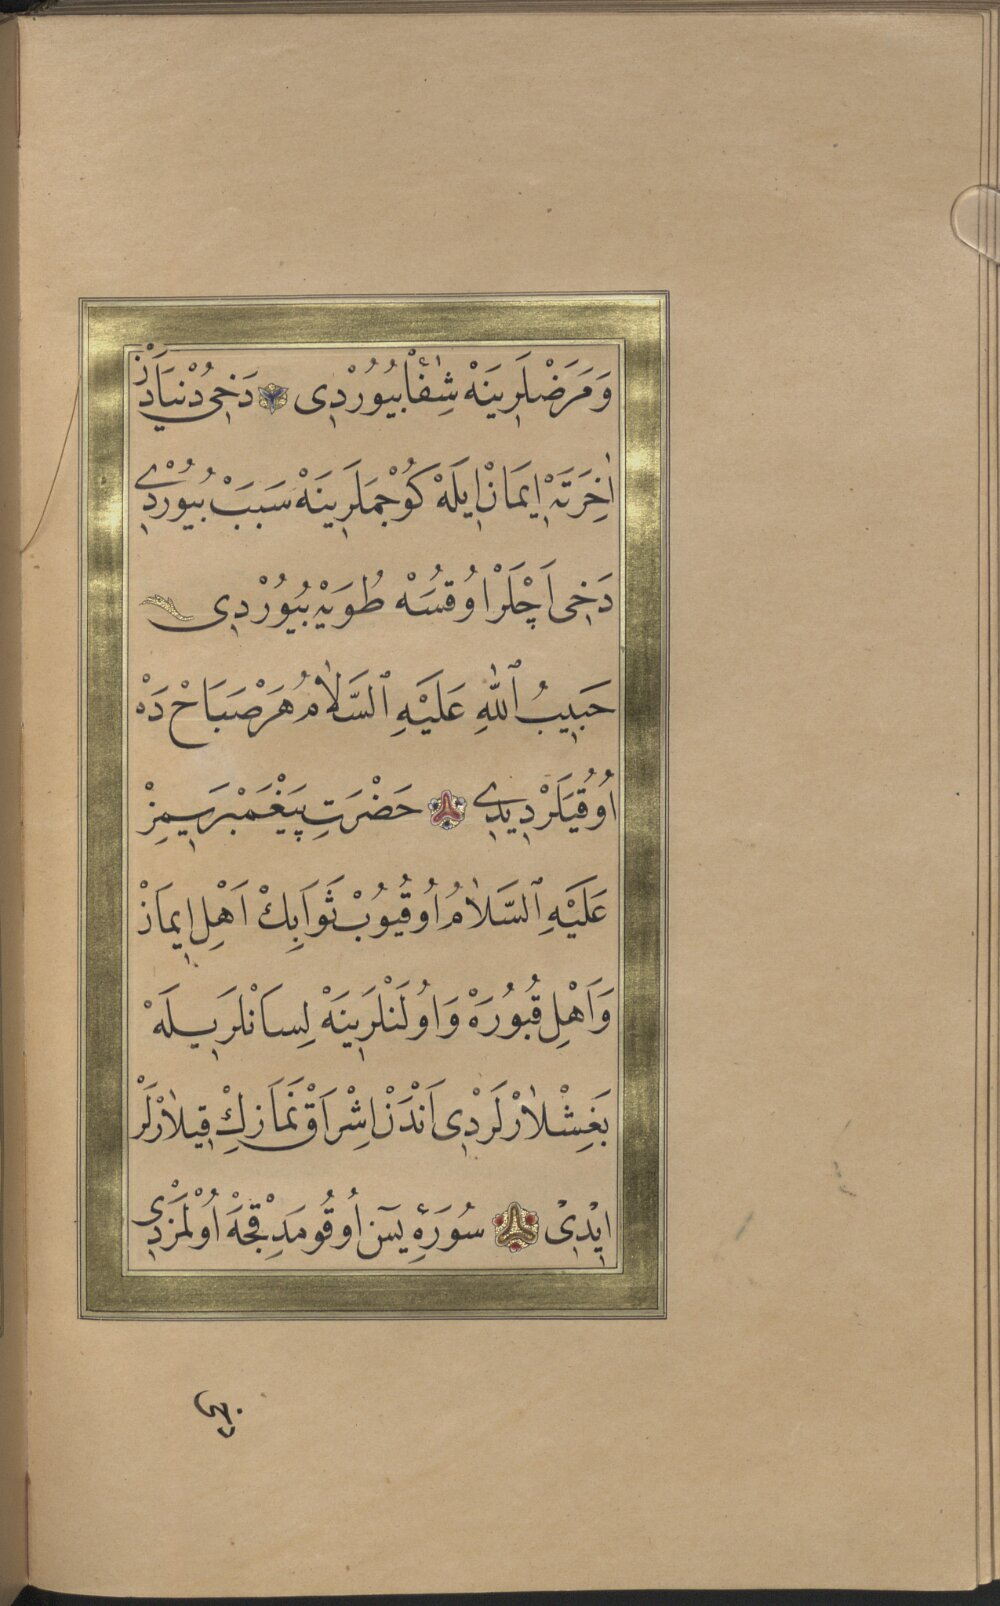 وَمَرَضْلَرِينَهْ شِفَٓا بُيُورْدِى دَخِى دُنْيَادَنْ
اٰخِرَتَهْ اِيمَانْ اِيلَهْ كُوْچْمَلَرِينَهْ سَبَبْ بُيُورْدِى
دَخِى اَچْلَرْ اُوقُسَهْ طُويَهْ بُيُورْدِى
حَبِيبُ ٱللّٰهِ عَلَيْهِ ٱلسَّلَامُ هَرْ صَبَاحْ دَهْ
اُوقُيَلَرْ دِيدِى حَضْرَتِ پَيْغَمْبَرِيمِزْ
عَلَيْهِ ٱلسَّلَامُ اُوقُيُوبْ ثَوَابِكْ اَهْلِ اِيمَانْ
وَاَهْلِ قُبُورَهْ وَاُولَنْلَرِينَهْ لِسَانْلَرِيلَهْ
بَغِشْلَارْلَرْدِى اَنْدَنْ اِشْرَاقْ نَمَازِكْ قِيلَارْلَرْ
اِيْدِىْ سُورَهِٔ يٓسٓ اُوقُومَدِقْجَهْ اُولْمَزْدِى